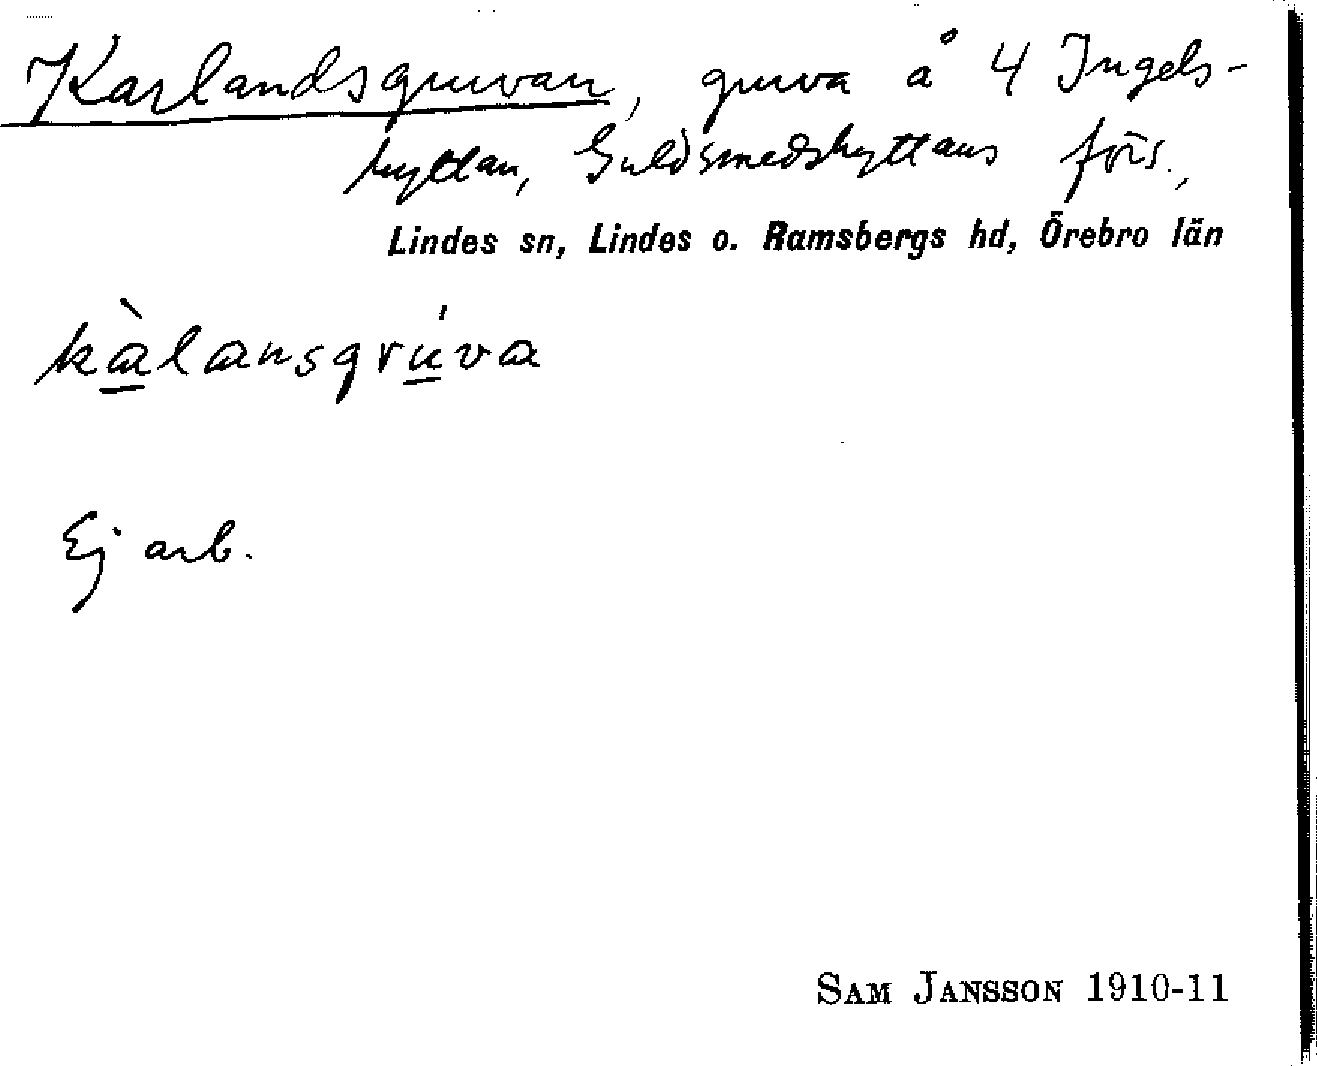 Karlandsgruvan, gruva å 4 Ingels-
hyttan, Guldsmedshyttans förs.,
Lindes sn, Lindes o. Ramsbergs hd, Örebro län
kàlansgrúva
Ej arb.
SAM JANSSON 1910-11